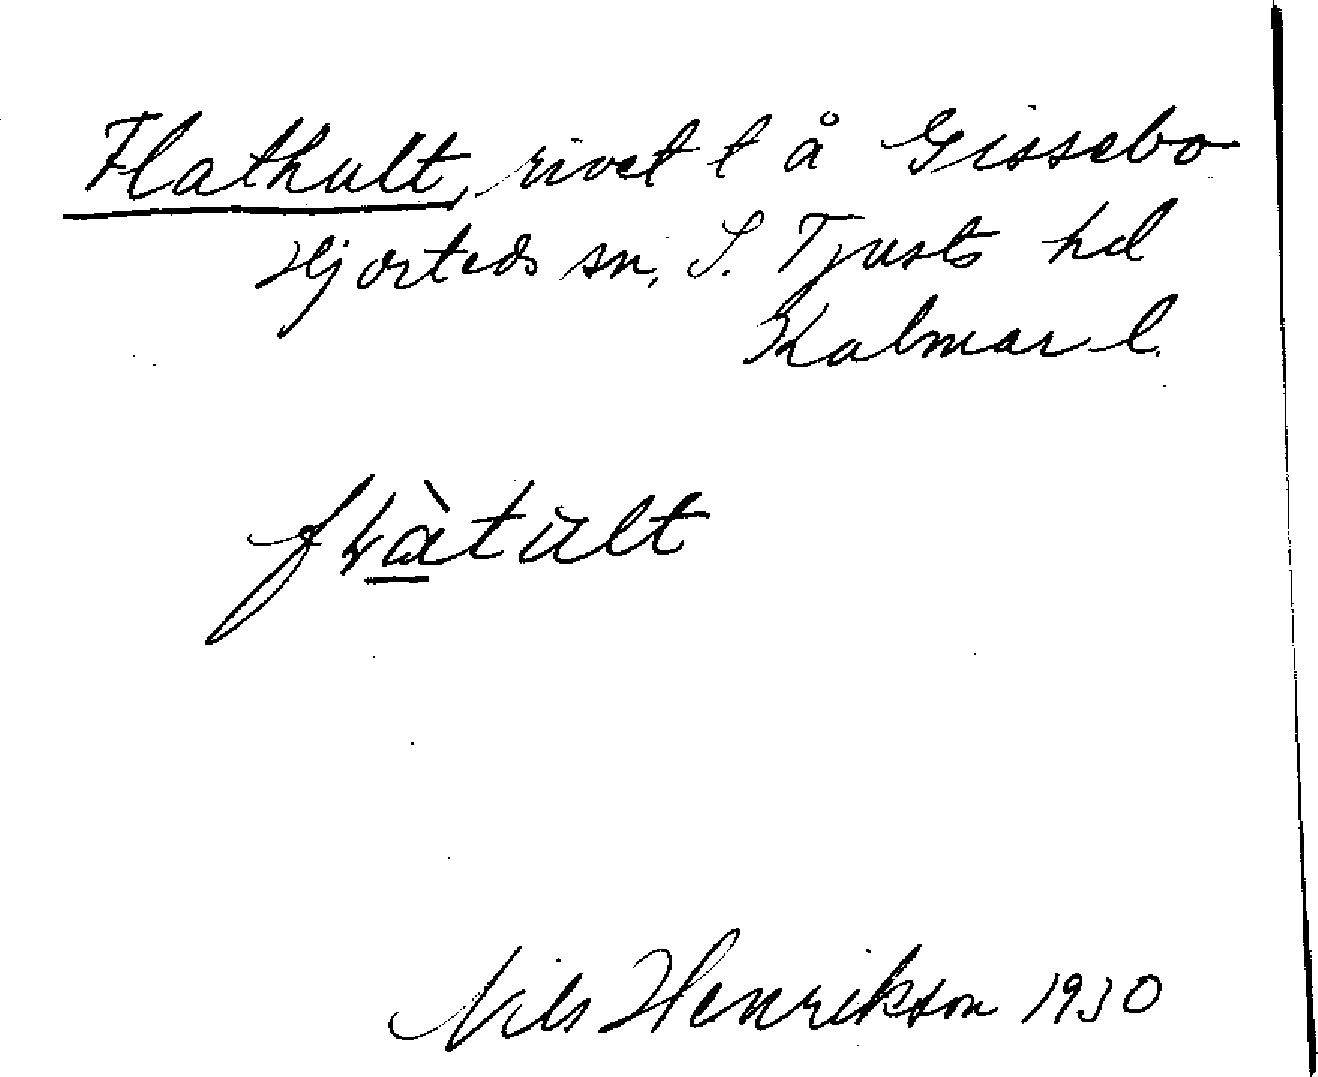 Flathult, rivet t å Gissebo
Hjorteds sn, S. Tjusts hd
Kalmar l.
Nils Henrikson 1930